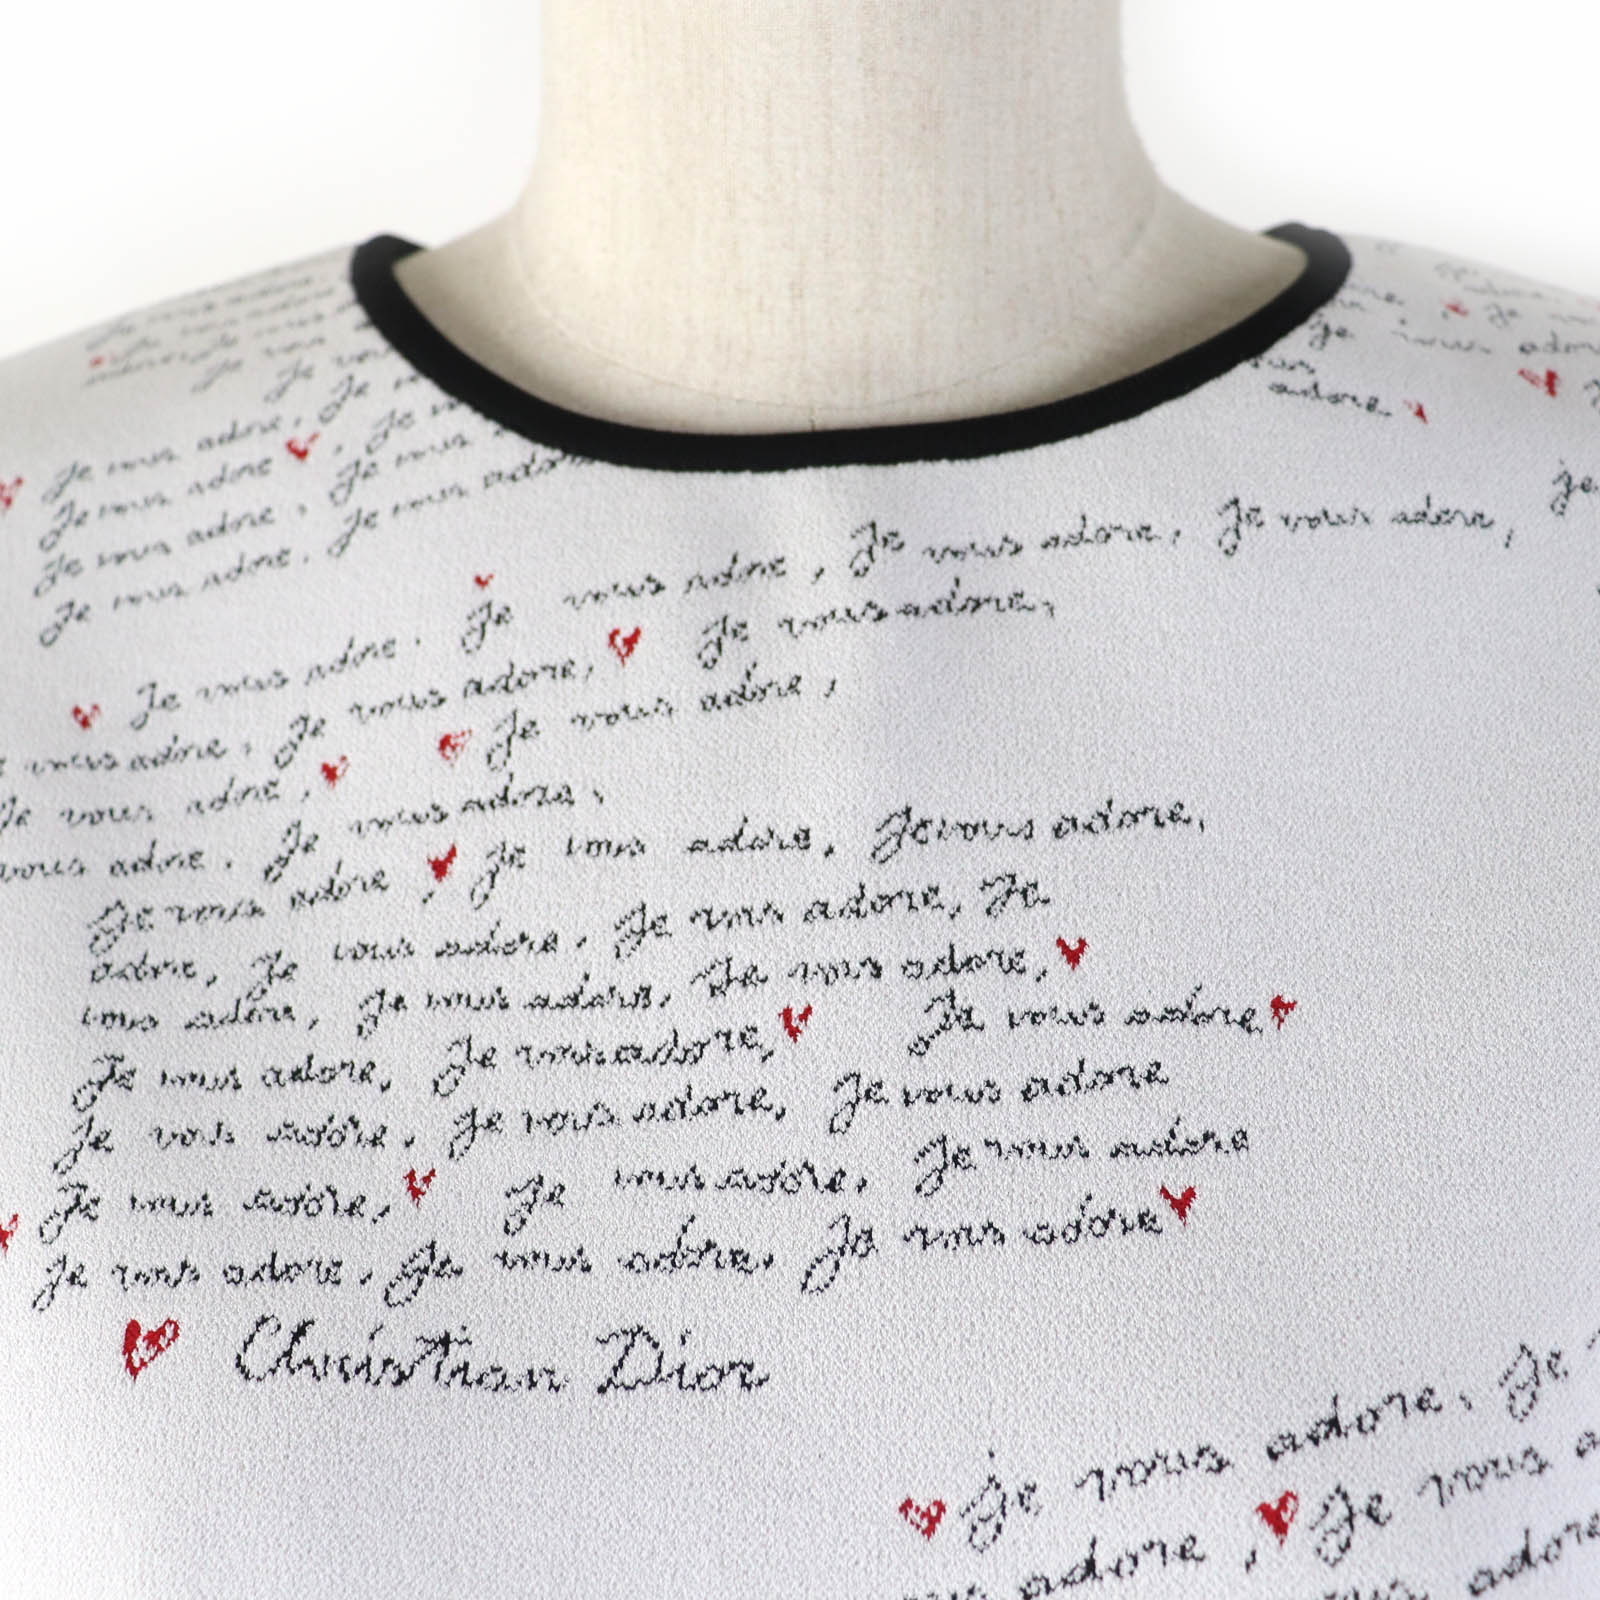 Je vous adore, Je
Je vous adore, Je
Je vous adore, Je vous
Je vous adore. Je vous adore
adore
Je
Je vous adore. Je vous adore, Je vous adore, Je vous adore,
vous adore, Je vous adore, Je vous adore,
Je vous adore, Je vous adore,
vous adore. Je vous adore,
Je vous adore, Je vous adore, Je vous adore,
adore, Je vous adore. Je vous adore, Je
vous adore, Je vous adore, Je vous adore,
Je vous adore, Je vous adore, Je vous adore
Je vous adore, Je vous adore, Je vous adore
Je vous adore, Je vous adore, Je vous adore
Je vous adore, Je vous adore, Je vous adore
Christian Dior
Je vous adore, Je
adore, Je vous
adore